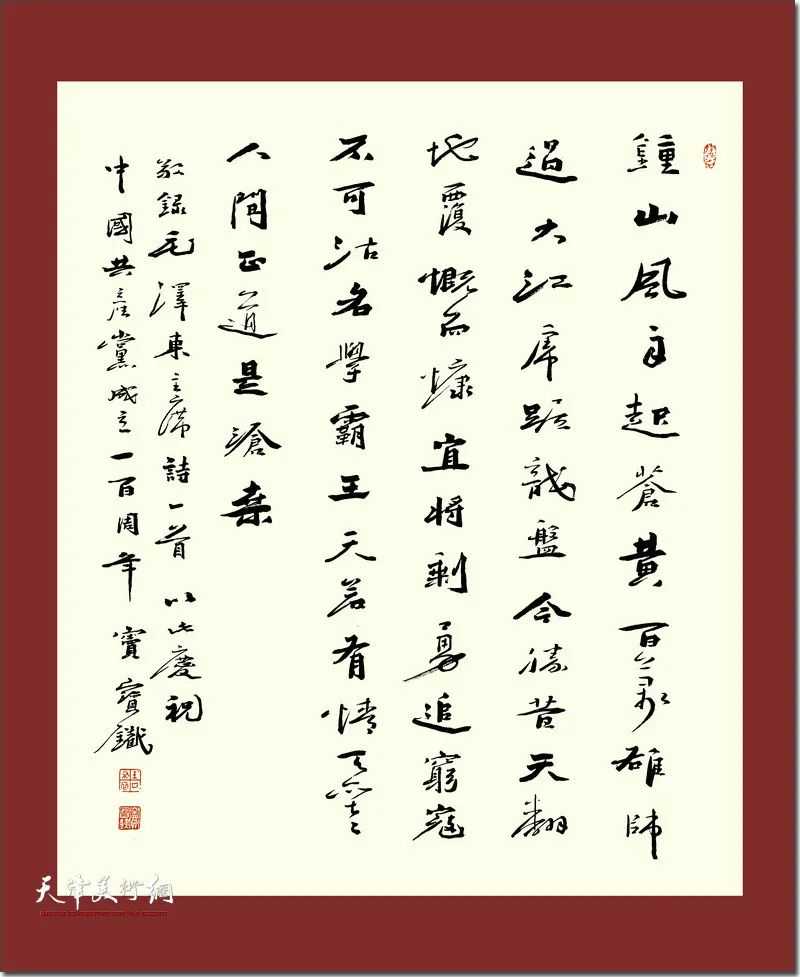 鍾山風雨起蒼黃百萬雄師
過大江虎踞龍盤今勝昔天翻
地覆慨而慷宜將剩勇追窮寇
不可沽名學霸王天若有情天亦老
人間正道是滄桑
敬錄毛澤東主席詩一首以此慶祝
中國共產黨成立一百周年 竇寶鐵
天津美術網